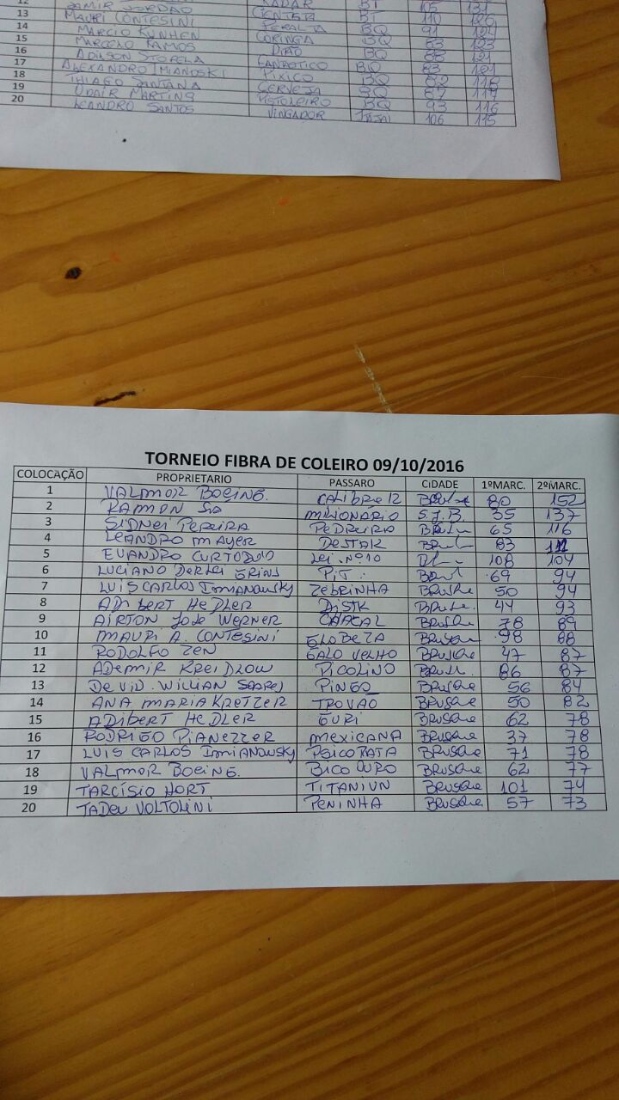 13 MAURI CONTESINI CENTER BT 110 126
14 MARCIO KUNHEN BQ 91
15 MARCELO RAMOS CORINGA BQ 83 123
16 ADILSON BQ 88
17 ALEXANDRO IMANOSKI FANATICO BQ 83 121
18 THIAGO SANTANA PIXICO BQ 82
19 VDAIR MARTINS CERVEJA BQ 117
20 LEANDRO SANTOS PISTOLEIRO BQ 93 116
VINGADOR 106 115
TORNEIO FIBRA DE COLEIRO 09/10/2016
COLOCAÇÃO PROPRIETARIO PASSARO CIDADE 1ºMARC. 2ºMARC.
1 VALMOR BOEING. CALIBRE 12 80 152
2 RAMON MILIONARIO S.J.B. 35 137
3 SIDNEI PEREIRA PEDREIRO 65 116
4 LEANDRO MAYER DESTAK 83 111
5 EVANDRO Lei Nº10 108 104
6 LUCIANO PIT. 69 94
7 LUIS CARLOS Imianowsky ZEBRINHA BRUSQUE 50 94
8 ADIBERT HEDLER 44 93
9 AIRTON José WERNER CHACAL BRUSQUE 78 89
10 MAURI A. CONTESINI GLOBEZA BRUSQUE 98 88
11 RODOLFO ZEN GALO VELHO BRUSQUE 47 87
12 ADEMIR KREIDLOW PICOLINO 86 87
13 DEVID. WILLIAN PINGO BRUSQUE 56 84
14 ANA MARIA KRETZER TROVAO BRUSQUE 50 82
15 ADIBERT HEDLER GURI BRUSQUE 62 78
16 RODRIGO PIANEZZER MEXICANA BRUSQUE 37 78
17 LUIS CARLOS IMIANOWSKY PSICOPATA BRUSQUE 71 78
18 VALMOR BOEING. BICO DURO BRUSQUE 62 77
19 TARCÍSIO HORT TITANIUN BRUSQUE 101 74
20 TADEU VOLTOLINI PENINHA BRUSQUE 57 73